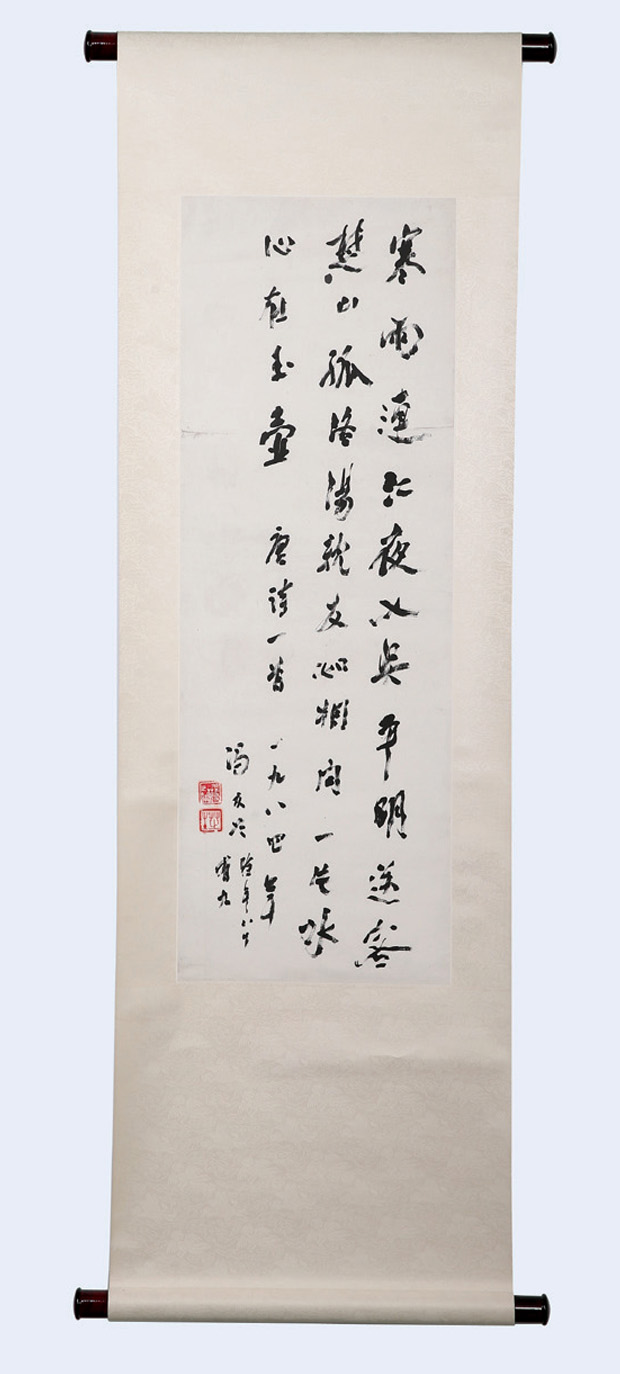 寒雨連江夜入吴平明送客
楚山孤洛陽親友如相問一片冰
心在玉壶 唐詩一首 一九八四年
冯友兰 时年八十
有九